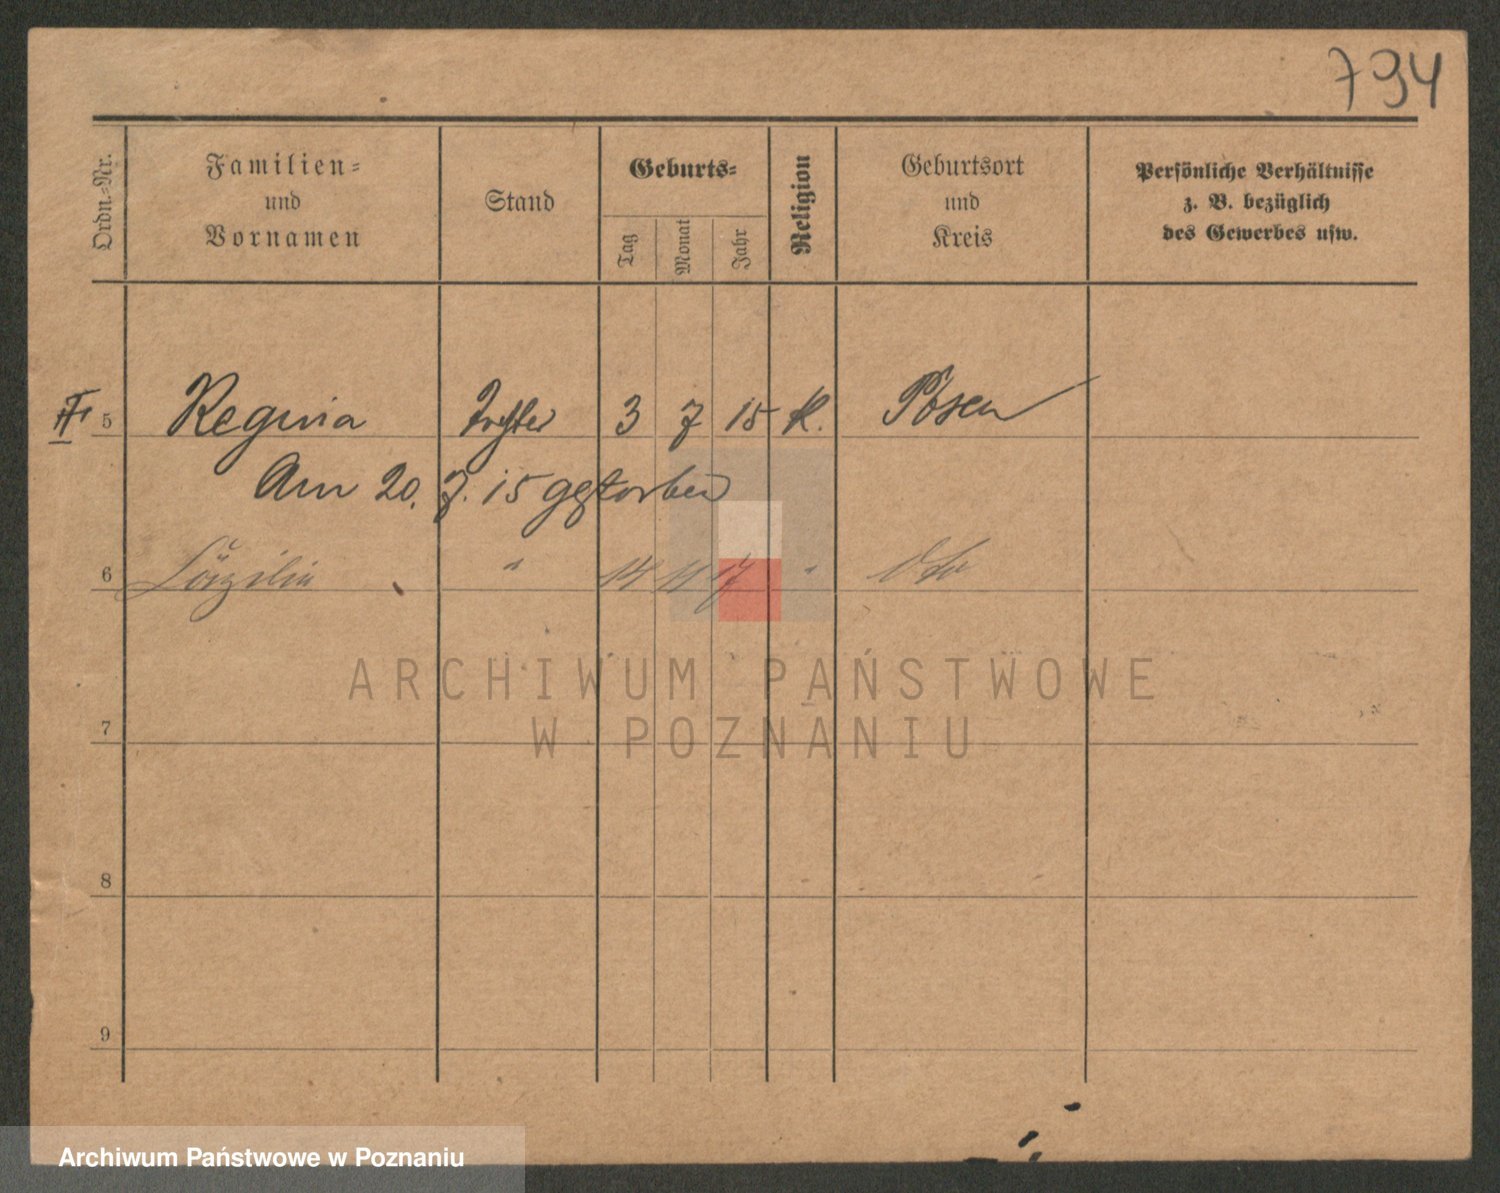 794
Ordn.-Nr.
Familien-
und
Vornamen
Stand
Geburts-
Tag
Monat
Jahr
Religion
Geburtsort
und
Kreis
Persönliche Verhältnisse
z. B. bezüglich
des Gewerbes usw.
5 Regina Tochter 3 7 15 K. Posen
Am 20. 7. 15 gestorben
6 Cäzilia " 14 11 17 " dto
7
8
9
ARCHIWUM PAŃSTWOWE
W POZNANIU
Archiwum Państwowe w Poznaniu